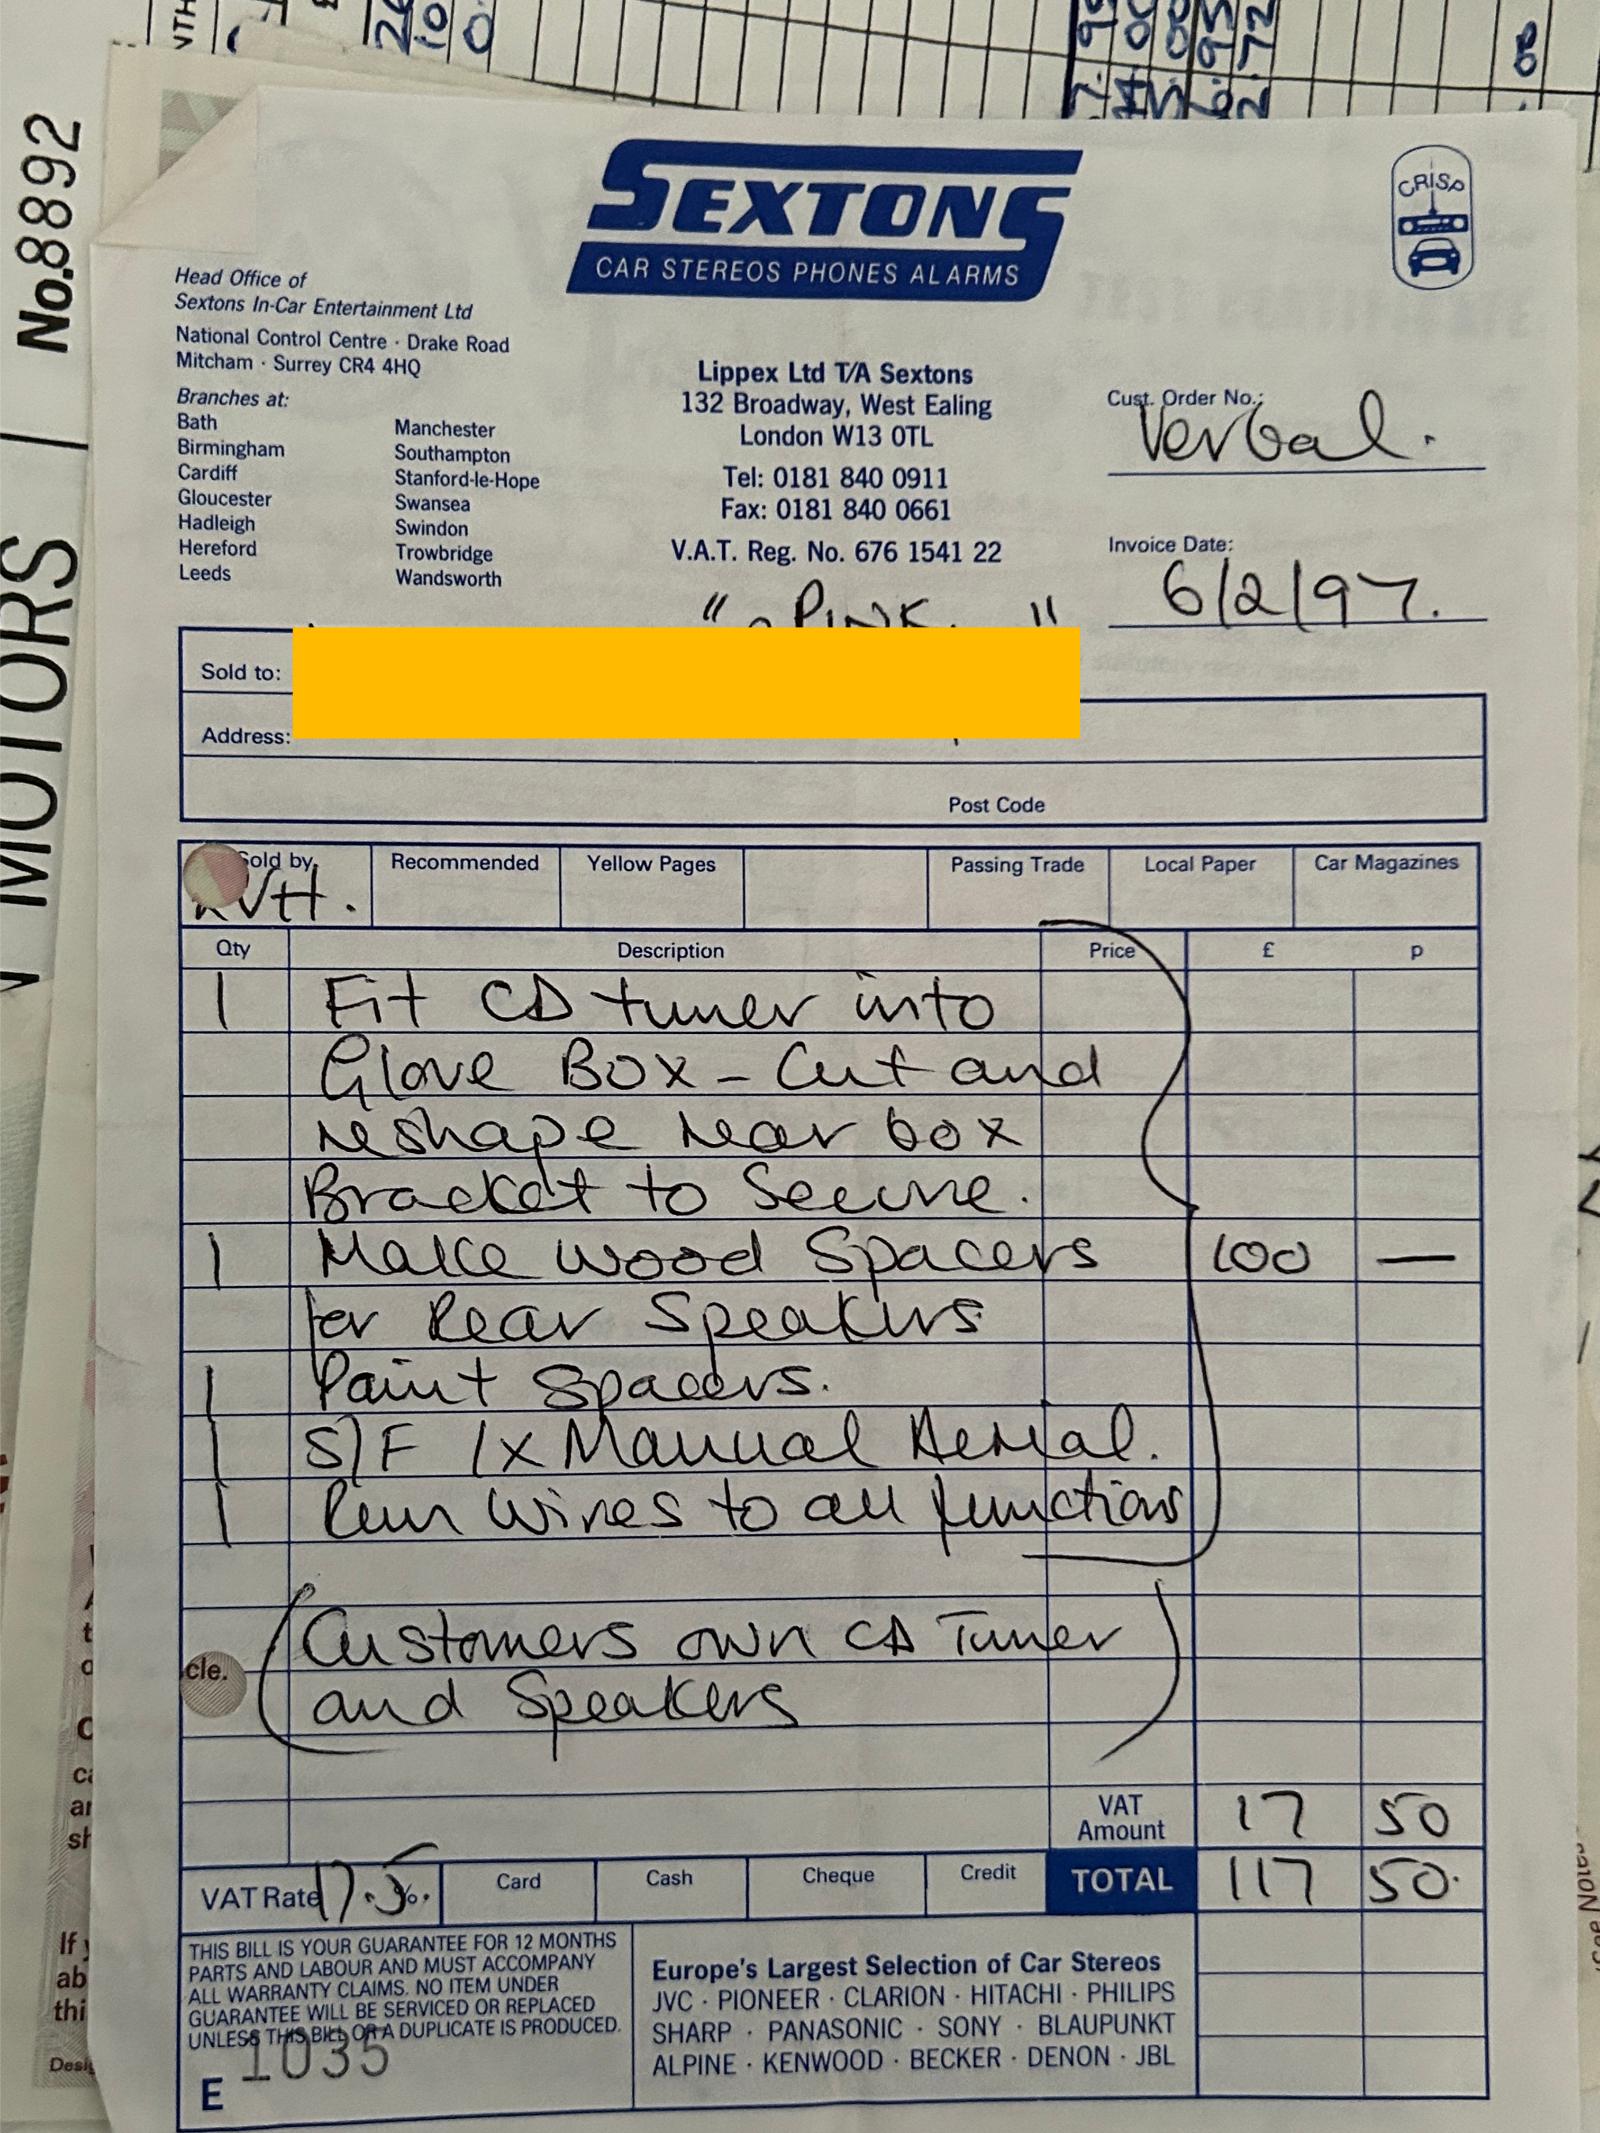 No.8892
MOTORS
SEXTONS
CAR STEREOS PHONES ALARMS
CRISP
Head Office of
Sextons In-Car Entertainment Ltd
National Control Centre · Drake Road
Mitcham · Surrey CR4 4HQ
Branches at:
Bath
Birmingham
Cardiff
Gloucester
Hadleigh
Hereford
Leeds
Manchester
Southampton
Stanford-le-Hope
Swansea
Swindon
Trowbridge
Wandsworth
Lippex Ltd T/A Sextons
132 Broadway, West Ealing
London W13 0TL
Tel: 0181 840 0911
Fax: 0181 840 0661
V.A.T. Reg. No. 676 1541 22
Cust. Order No.:
Verbal.
Invoice Date:
6/2/97.
" PINK "
Sold to:
Address:
Post Code
Sold by
Recommended
Yellow Pages
Passing Trade
Local Paper
Car Magazines
Qty Description Price £ p
1 Fit CD tuner into
Glove Box - Cut and
reshape rear box
Bracket to Secure.
1 Make wood Spacers 100 —
for Rear Speakers
1 Paint Spacers.
1 S/F 1x Manual Aerial.
1 Run Wires to all functions
(Customers own CD Tuner
and Speakers)
cle.
VAT Amount 17 50
VAT Rate 17.5%.
Card
Cash
Cheque
Credit
TOTAL 117 50.
THIS BILL IS YOUR GUARANTEE FOR 12 MONTHS
PARTS AND LABOUR AND MUST ACCOMPANY
ALL WARRANTY CLAIMS. NO ITEM UNDER
GUARANTEE WILL BE SERVICED OR REPLACED
UNLESS THIS BILL OR A DUPLICATE IS PRODUCED.
E 1035
Europe's Largest Selection of Car Stereos
JVC · PIONEER · CLARION · HITACHI · PHILIPS
SHARP · PANASONIC · SONY · BLAUPUNKT
ALPINE · KENWOOD · BECKER · DENON · JBL